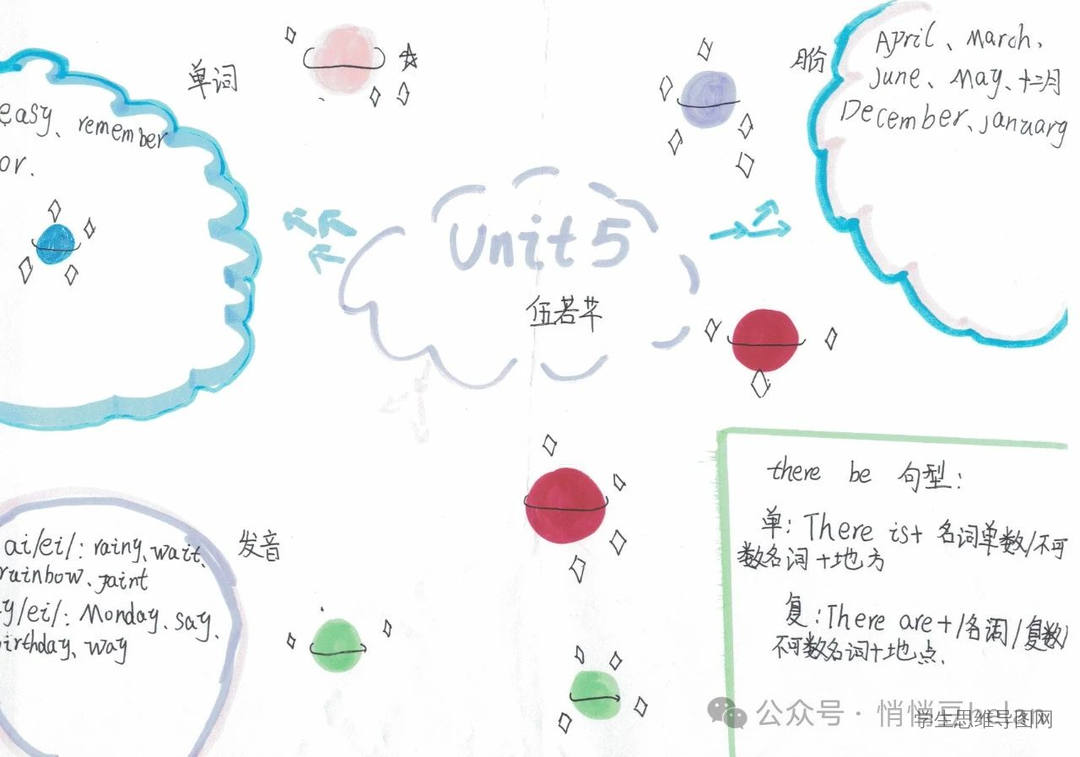 单词
easy、remember
or.
月份
April、March、
June、May、十二月
December、january
Unit 5
伍若芊
ai/ei/: rainy、wait、
rainbow、paint
y/ei/: Monday、say、
birthday、way
发音
there be 句型:
单: There is+ 名词单数/不可
数名词+地方
复: There are+/名词/复数/
不可数名词+地点.
公众号·悄悄豆
学生思维导图网